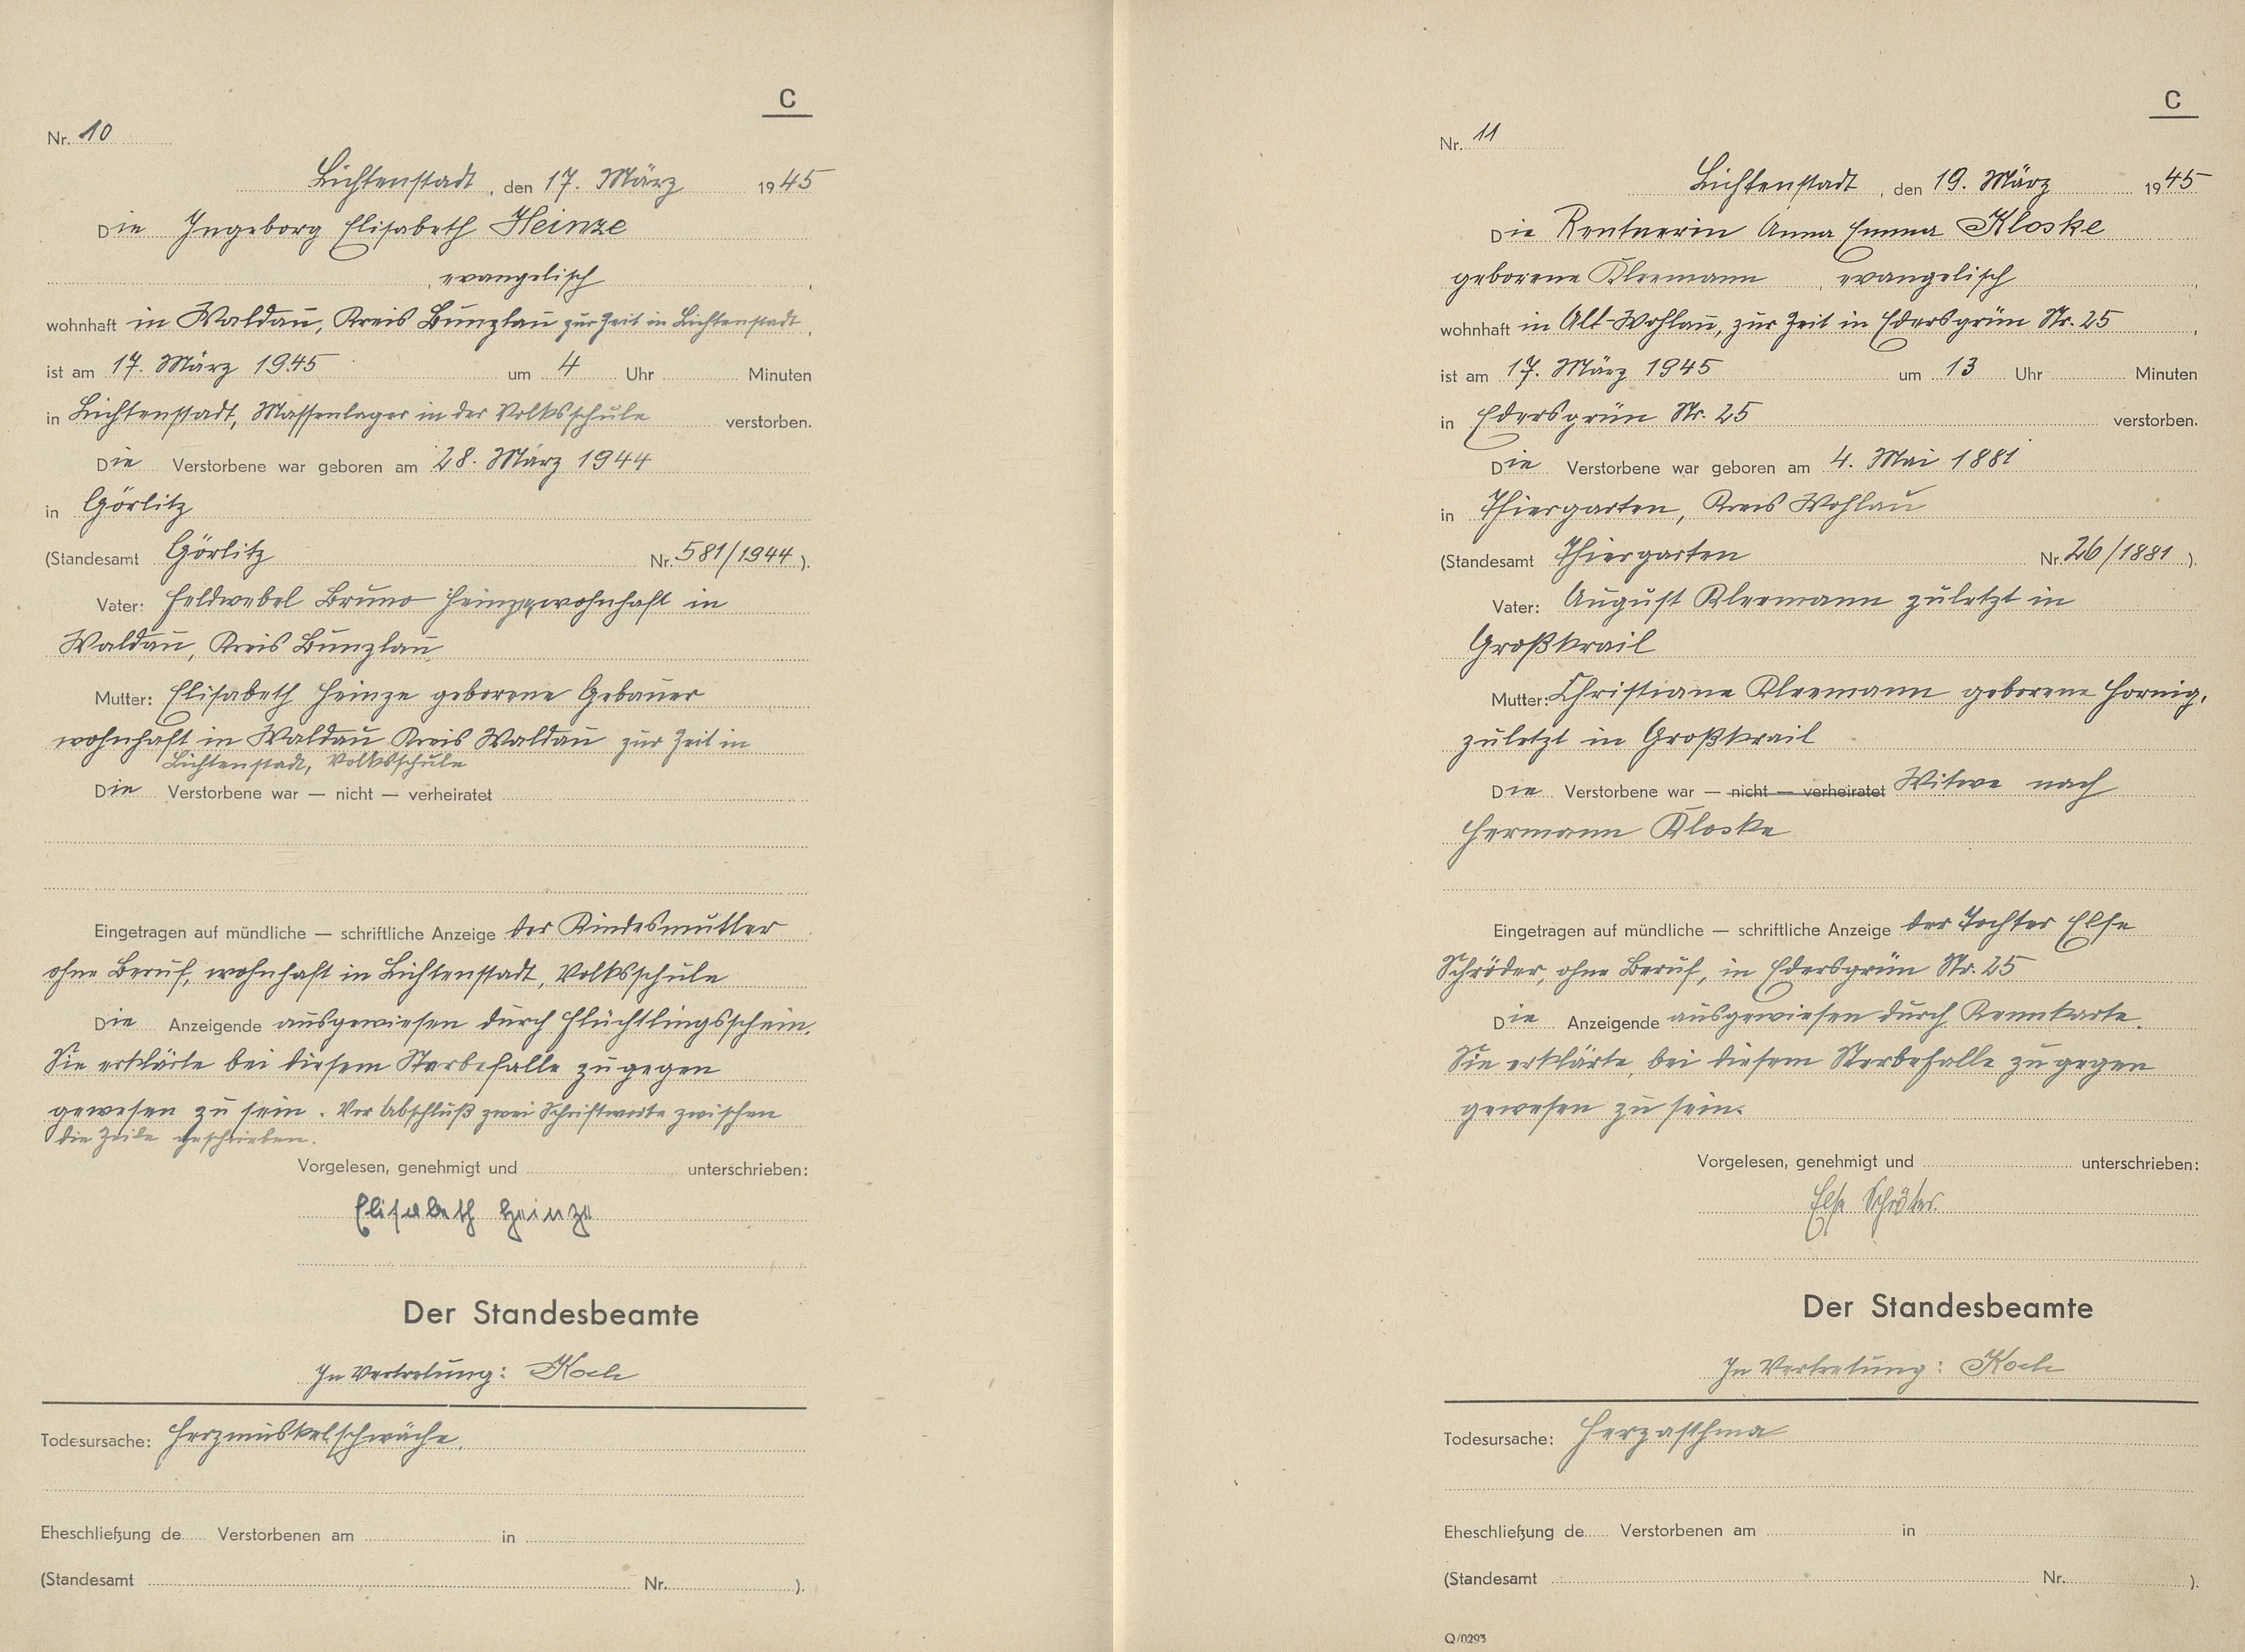 C
Nr. 10
Lichtenstadt, den 17. März 1945
Die Ingeborg Elisabeth Heinze
, evangelisch ,
wohnhaft in Waldau, Kreis Bunzlau zur Zeit in Lichtenstadt,
ist am 17. März 1945 um 4 Uhr Minuten
in Lichtenstadt, Massenlager in der Volksschule verstorben.
Die Verstorbene war geboren am 28. März 1944
in Görlitz
(Standesamt Görlitz Nr. 581/1944 ).
Vater: Feldwebel Bruno Heinze, wohnhaft in
Waldau, Kreis Bunzlau
Mutter: Elisabeth Heinze geborene Gebauer
wohnhaft in Waldau Kreis Waldau zur Zeit in
Lichtenstadt, Volksschule
Die Verstorbene war — nicht — verheiratet
Eingetragen auf mündliche — schriftliche Anzeige der Kindesmutter
ohne Beruf, wohnhaft in Lichtenstadt, Volksschule
Die Anzeigende ausgewiesen durch Flüchtlingsschein.
Sie erklärte bei diesem Sterbefalle zugegen
gewesen zu sein. Vor Abschluß zwei Schriftworte zwischen
die Zeile geschrieben.
Vorgelesen, genehmigt und unterschrieben:
Elisabeth Heinze
Der Standesbeamte
In Vertretung: Koch
Todesursache: Herzmuskelschwäche.
Eheschließung de Verstorbenen am in
(Standesamt Nr. ).
C
Nr. 11
Lichtenstadt, den 19. März 1945
Die Rentnerin Anna Emma Kloske
geborene Kleemann , evangelisch ,
wohnhaft in Alt-Wohlau, zur Zeit in Edersgrün Nr. 25 ,
ist am 17. März 1945 um 13 Uhr Minuten
in Edersgrün Nr. 25 verstorben.
Die Verstorbene war geboren am 4. Mai 1881
in Thiergarten, Kreis Wohlau
(Standesamt Thiergarten Nr. 26/1881 ).
Vater: August Kleemann zuletzt in
Großkrail
Mutter: Christiane Kleemann geborene Hornig,
zuletzt in Großkrail
Die Verstorbene war — nicht — verheiratet Witwe nach
Hermann Kloske
Eingetragen auf mündliche — schriftliche Anzeige der Tochter Else
Schröder, ohne Beruf, in Edersgrün Nr. 25
Die Anzeigende ausgewiesen durch Kennkarte.
Sie erklärte, bei diesem Sterbefalle zugegen
gewesen zu sein.
Vorgelesen, genehmigt und unterschrieben:
Else Schröter.
Der Standesbeamte
In Vertretung: Koch
Todesursache: Herzasthma
Eheschließung de Verstorbenen am in
(Standesamt Nr. ).
Q/0293